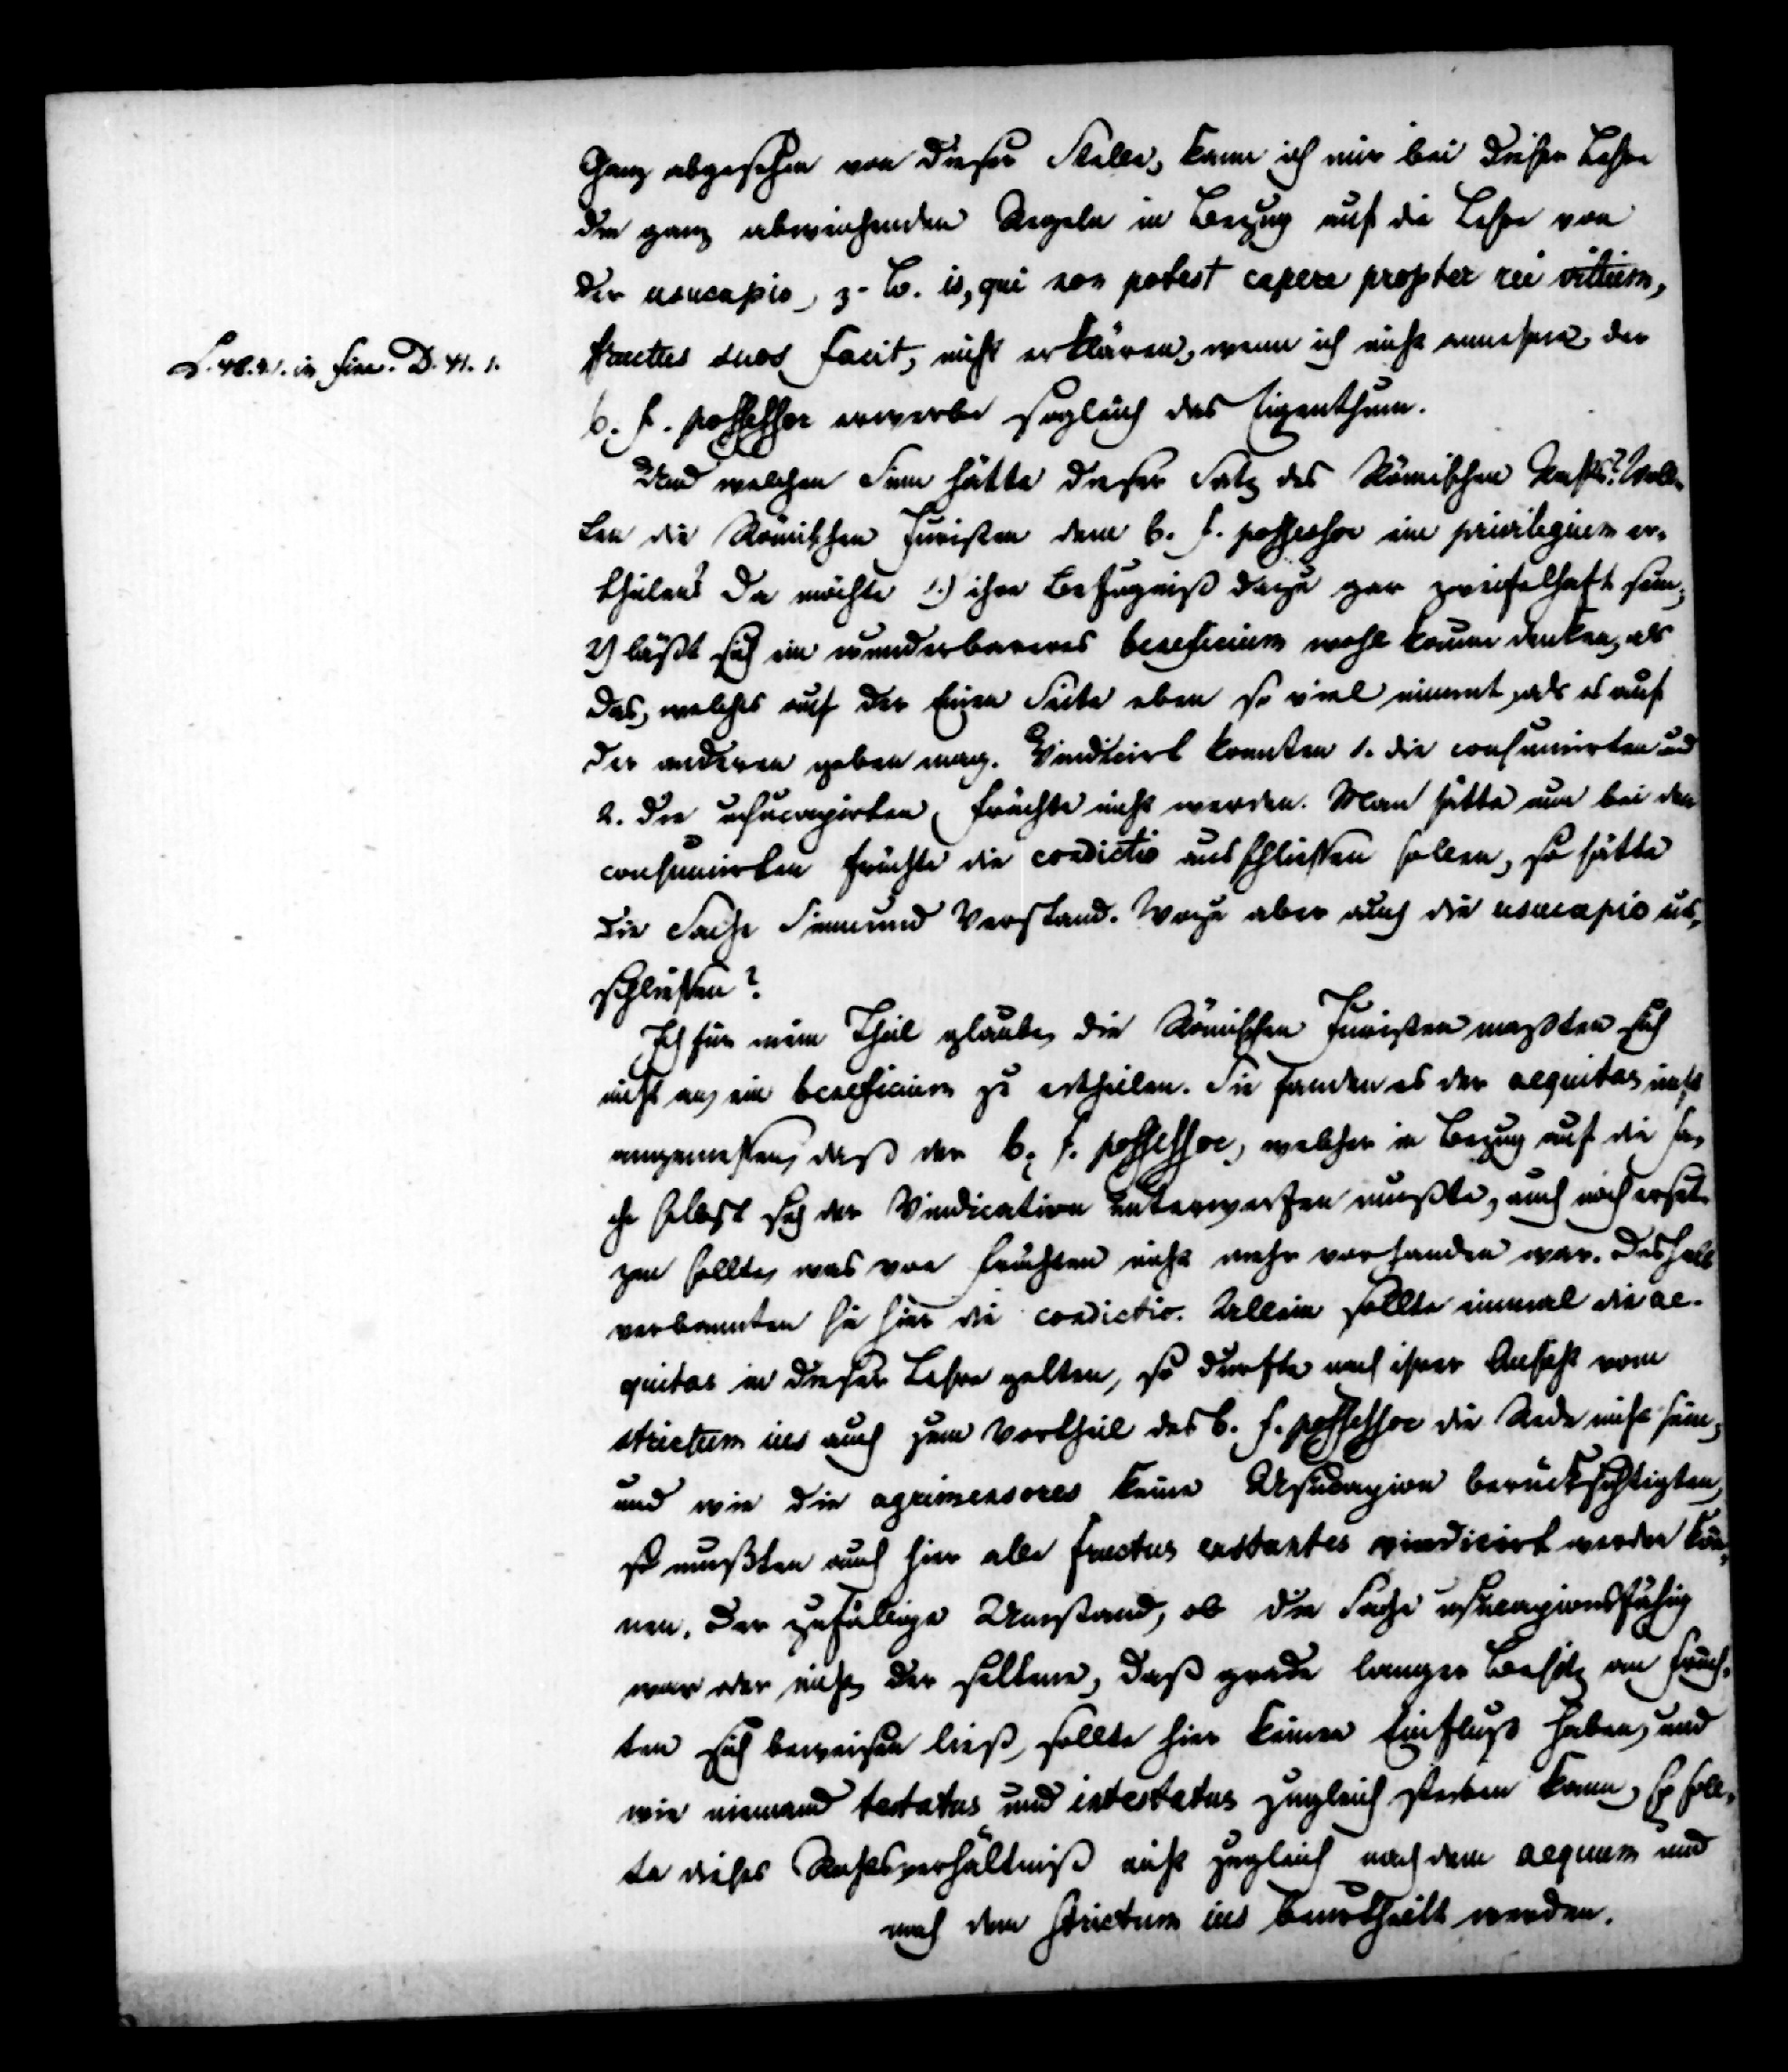 Ganz abgesehen von dieser Stelle, kann ich mir bei dieser Lehre
die ganz abweichenden Regeln in Bezug auf die Lehre von
der usucapio, z. B. is, qui non potest capere propter rei vitium,
fructus suos facit, nicht erklären, wenn ich nicht annehme, der
L. 48. §1. in fine. D. 41. 1.
b. f. possessor erwerbe sogleich das Eigenthum.
Und welchen Sinn hätte dieser Satz des Römischen Rechts? Woll-
ten die Römischen Juristen dem b. f. possessor ein privilegium er-
theilen? Da möchte 1) ihre Befugniß dazu gar zweifelhaft sein;
2) läßt sich ein wunderbareres beneficium wohl kaum denken, als
das, welches auf der Einen Seite eben so viel nimmt, als es auf
der anderen geben mag. Vindicirt konnten 1. die consumirten und
2. die usucapirten Früchte nicht werden. Man hätte nun bei den
consumirten Früchte die condictio ausschließen sollen, so hätte
die Sache Sinn und Verstand. Wozu aber auch die usucapio aus-
schließen?
Ich für mein Theil glaube, die Römischen Juristen maßten sich
nicht an, ein beneficium zu ertheilen. Sie fanden es der aequitas nicht
angemessen, daß der b. f. possessor, welcher in Bezug auf die Sa-
che selbst sich der Vindication unterwerfen mußte, auch noch erset-
zen sollte, was von Früchten nicht mehr vorhanden war. Deshalb
verbannten sie hier die condictio. Allein sollte einmal die ae-
quitas in dieser Lehre gelten, so durfte nach ihrer Ansicht vom
strictum ius auch zum Vortheil des b. f. possessor die Rede nicht sein;
und wie die agrimensores keine Usucapion berücksichtigten,
so mußten auch hier alle fructus exstantes vindicirt werden kön-
nen. Der zufällige Umstand, ob die Sache usucapionsfähig
war oder nicht, der seltene, daß grade langer Besitz an Früch-
ten sich beweisen ließ, sollte hier keinen Einfluß haben, und
wie niemand testatus und intestatus zugleich sterben kann, so soll-
te dieses Rechtsverhältniß nicht zugleich nach dem aequum und
nach dem strictum ius beurtheilt werden.